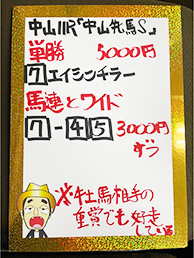 中山11R「中山牝馬S」
単勝 5000円
7エイシンチラー
馬連とワイド
7-45 3000円
ずつ
※牡馬相手の
重賞でも好走
している